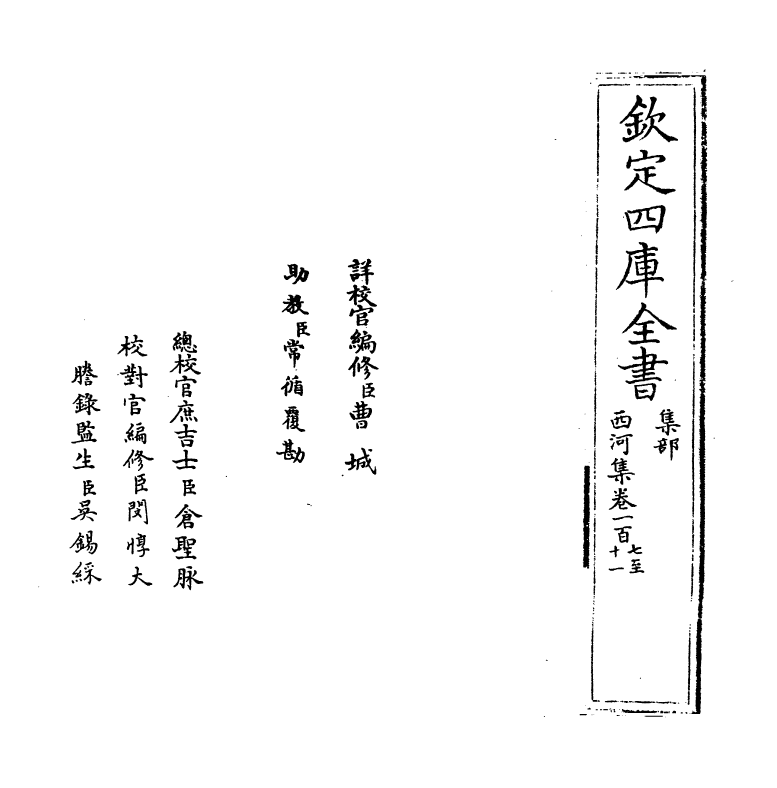 欽定四庫全書
集部
西河集卷一百七至
十一
詳校官編修臣曹城
助教臣常循覆勘
總校官庶吉士臣倉聖脉
校對官編修臣閔惇大
謄錄監生臣吳錫綵